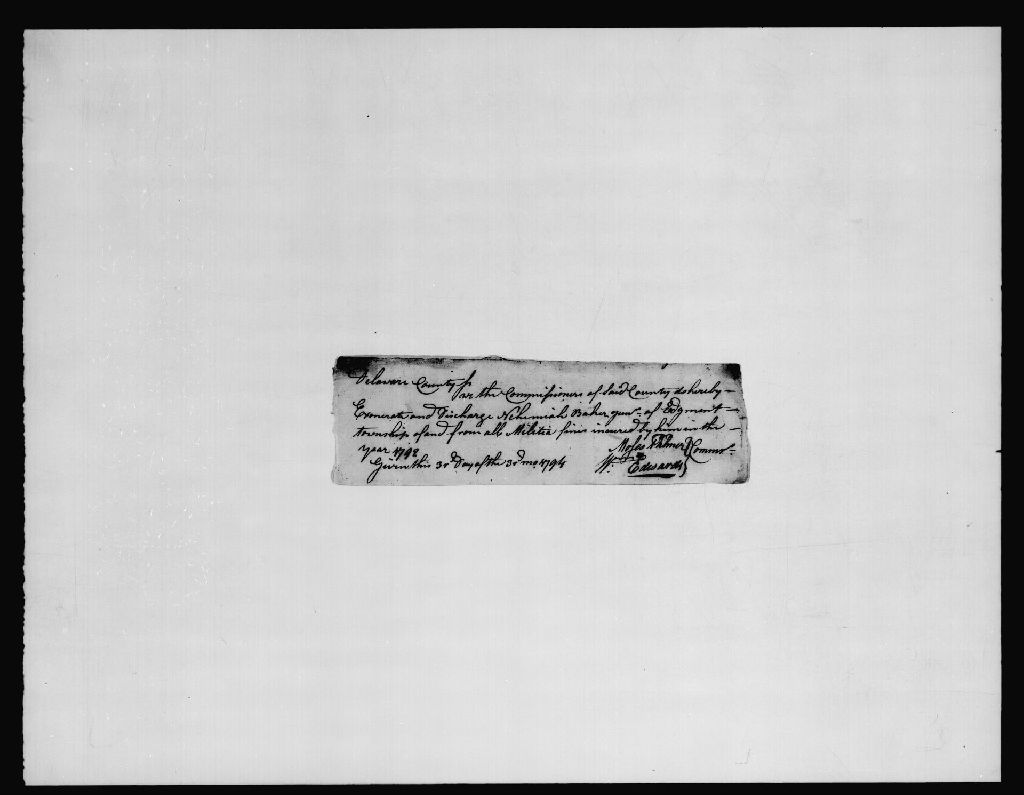 Delaware County ss
We the Commissioners of Said County do hereby
Exonerate and Discharge Nehemiah Baker junr. of Edgment
township of and from all Militia fines incured by him in the
year 1792
Moses Palmer } Commrs.
Given this 3rd Day of the 3rd mo. 1794
Wm. Edwards }